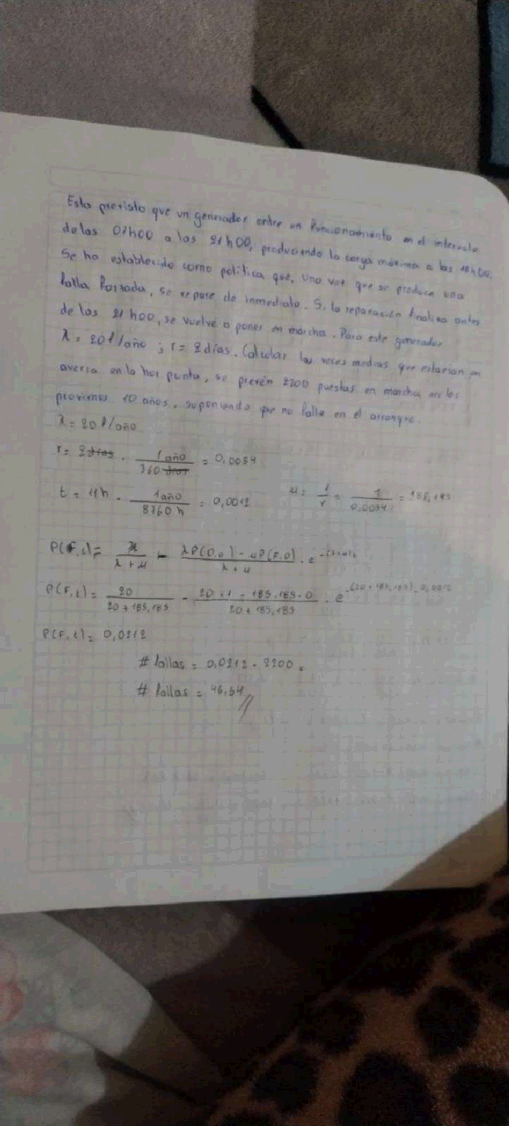 Esta previsto que un generador entre en funcionamiento en el intervalo
de las 07h00 a las 21h00, produciendo la carga máxima a las 18h00.
Se ha establecido como política que, una vez que se produce una
falla forzada, se repare de inmediato. Si la reparación finaliza antes
de las 21h00, se vuelve a poner en marcha. Para este generador
λ = 20 f/año ; r = 2 días. Calcular las veces medias que estarían en
avería en la hor punta, se prevén 2200 puestas en marcha en los
proximos 10 años, suponiendo que no falla en el arranque.
λ = 20 f/año
r = 2 días · 1 año / 360 días = 0,0054
t = 11h · 1 año / 8760 h = 0,0012 μ = 1/r = 1/0,0054 = 185,185
P(F,t) = λ/(λ+μ) - (λP(O,0) - μP(F,0))/(λ+μ) · e
P(F,t) = 20/(20+185,185) - (20·1 - 185,185·0)/(20+185,185) · e
P(F,t) = 0,0212
# fallas = 0,0212 · 2200
# fallas = 46,64 //